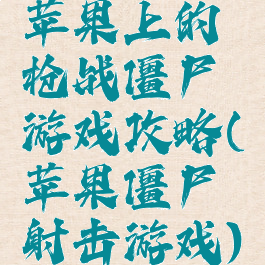 苹果上的
枪战僵尸
游戏攻略(
苹果僵尸
射击游戏)